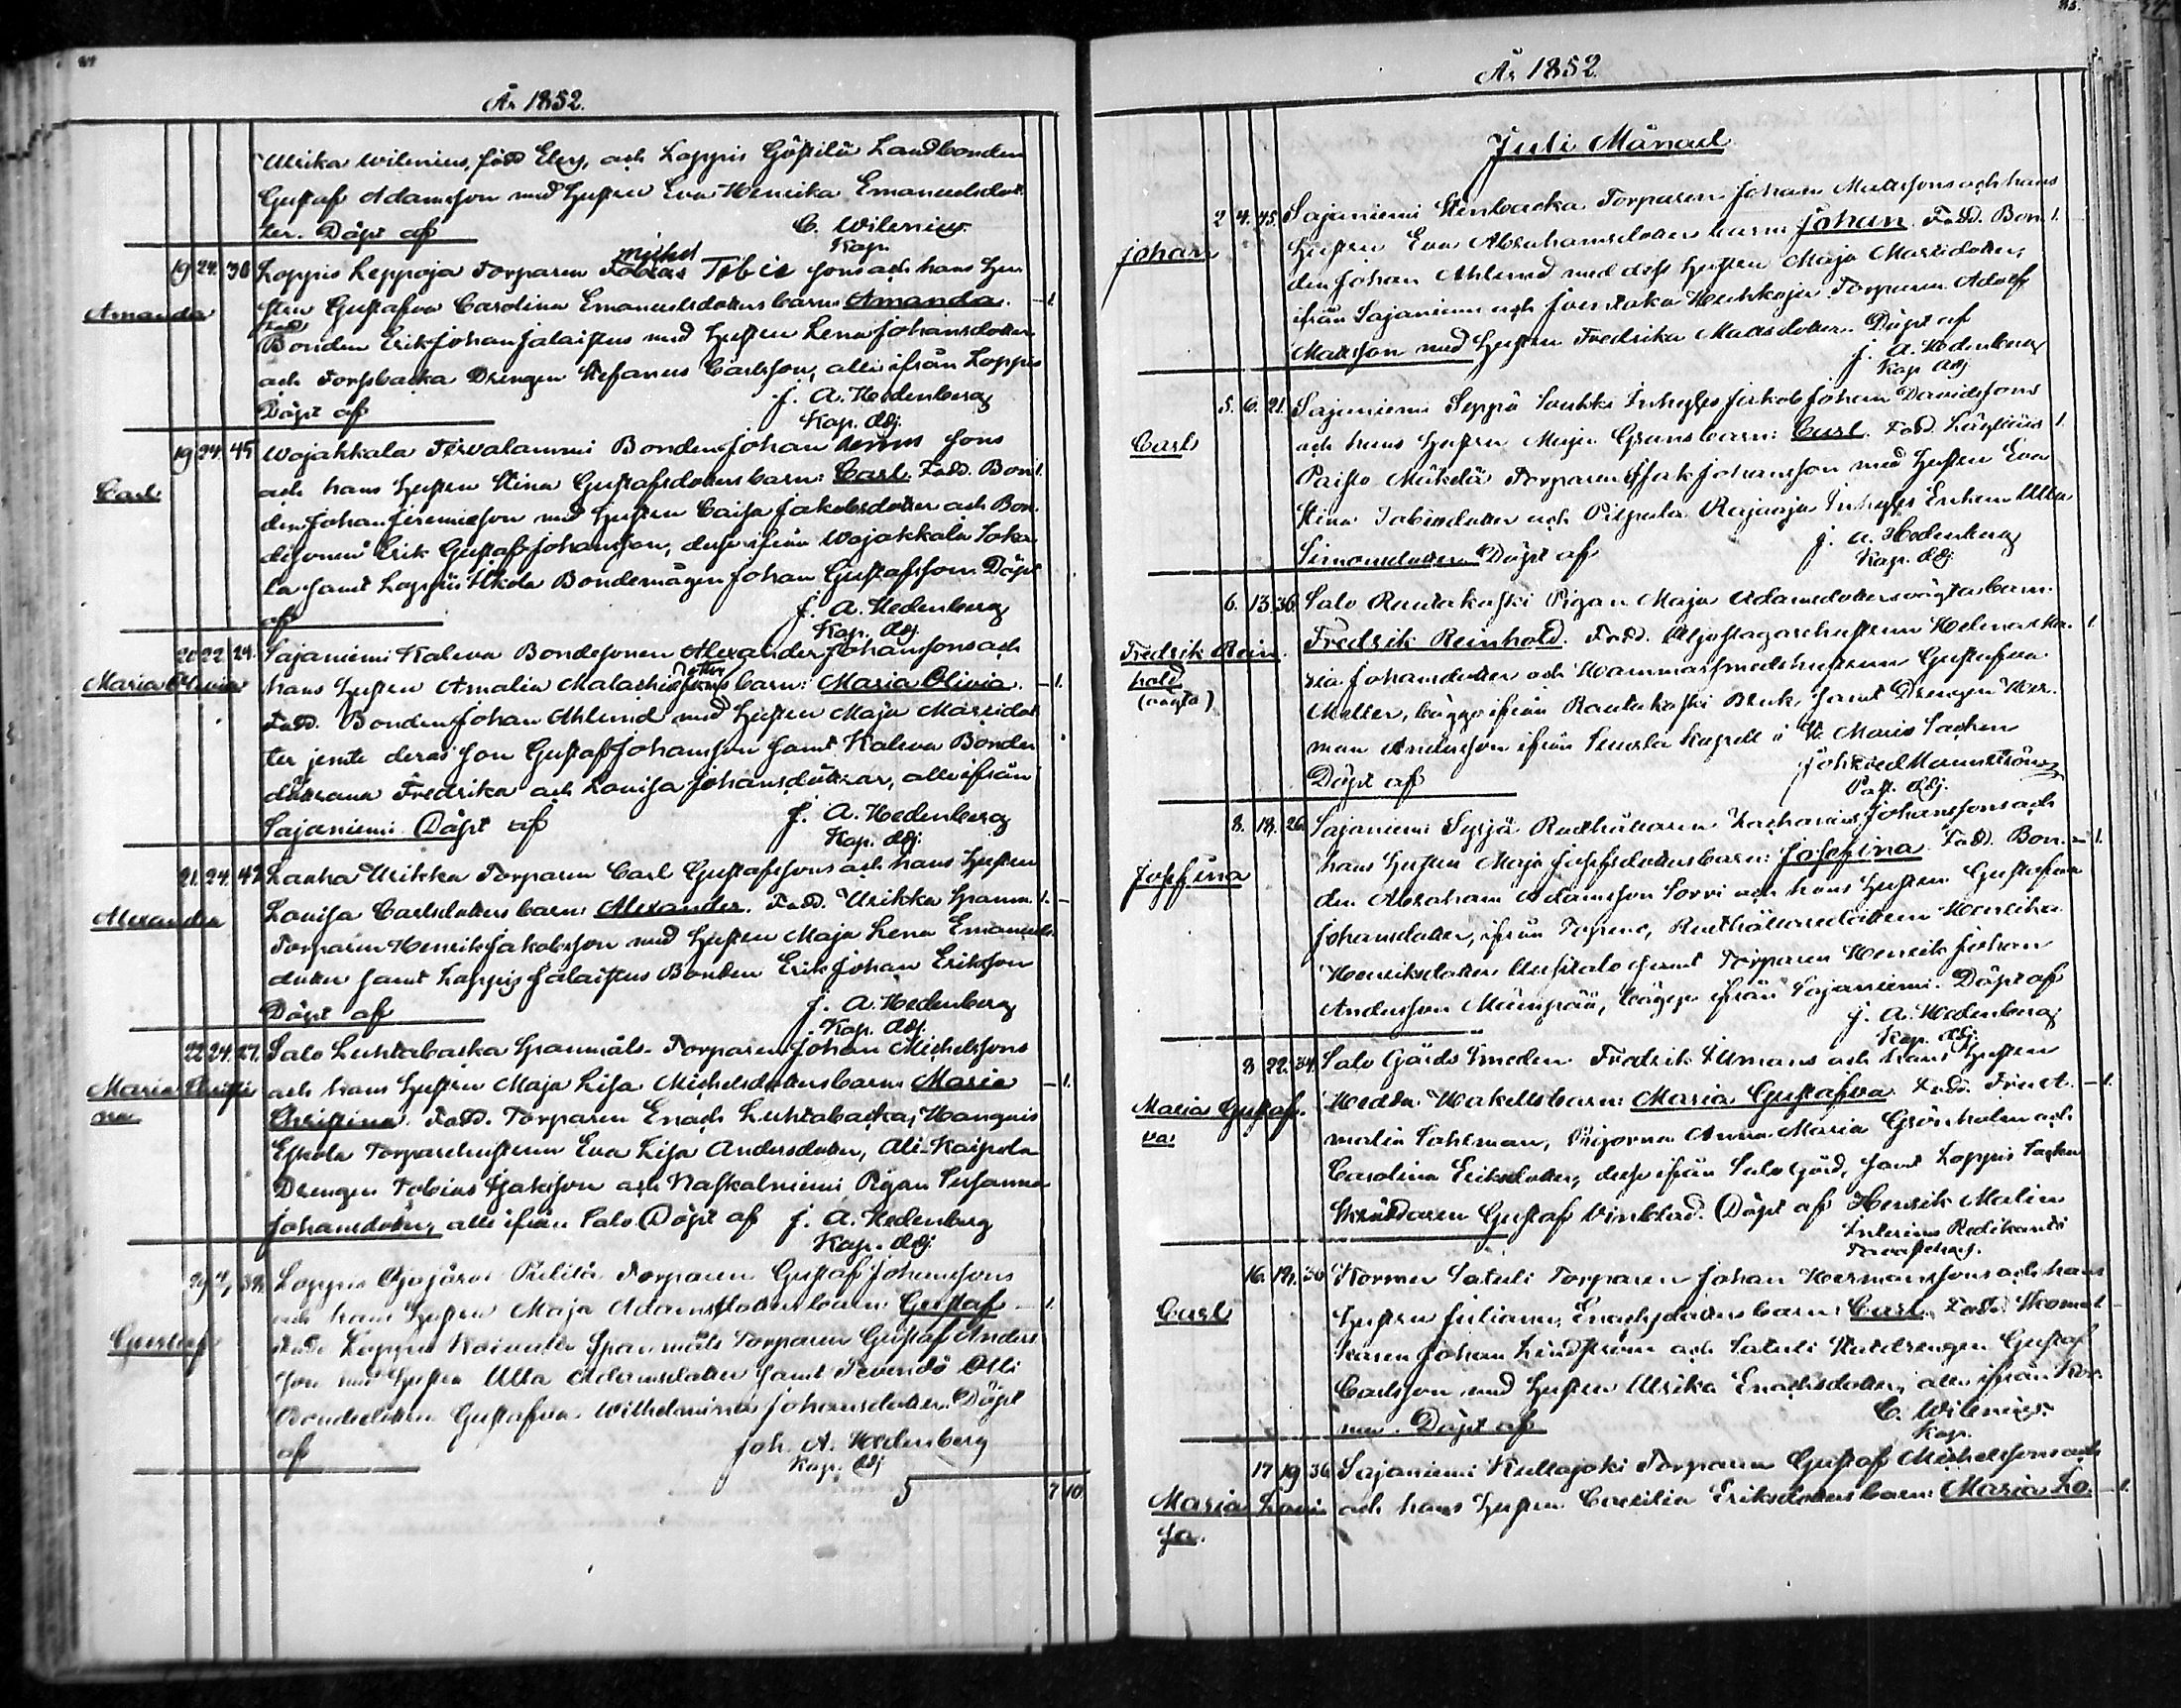 År 1852.
Ulrika Wilenius, född Elg, och Loppis Göstilä Landbonden
Gustaf Adamsson med Hustru Eva Henrika Emanuelsdot
ter. Döpt af C. Wilenius.
Kap.
Amanda
19 24. 30 Loppis Leppoja Torparen Michel Tobie sons och hans Hu
stru Gustafva Carolina Emanuelsdotters barn: Amanda. 1.
Fadd.
Bonden Erik Johan Jalaistus med Hustru Lena Johansdotter
och Torpbacka Drengen Stefanus Carlsson, alla ifrån Loppis
Döpt af J. A. Hedenberg
Kap. Adj.
Carl
19 24. 45 Wojakkala Tervalammi Bonden Johan sons
och hans Hustru Stina Gustafsdotters barn: Carl. Fadd. Bon 1.
den Johan Jeremiesson med Hustru Caisa Jakobsdotter och Bon
desonen Erik Gustaf Johansson, desse ifrån Wojakkala
samt Loppis Bondemågen Johan Gustafsson. Döpt
af J. A. Hedenberg
Kap. Adj.
Maria Olivia
20 22 24. Sajaniemi Kaleva Bondesonen Alexander Johanssons och
hans Hustru Amalia Malachiedotters barn: Maria Olivia. 1.
Fadd. Bonden Johan Ahlund med Hustru Maja Mariidot
ter jemte deras son Gustaf Johansson samt Kaleva Bonde
döttrarna Fredrika och Lovisa Johansdöttrar, alla ifrån
Sajaniemi. Döpt af J. A. Hedenberg
Kap. Adj.
Alexander
21. 24. 42 Lauha Urikka Torparen Carl Gustafssons och hans Hustru
Lovisa Carlsdotters barn: Alexander. Fadd. Urikka Spanm. 1.
Torparen Henrik Jakobsson med Hustru Maja Lena Emanuels
dotter samt Loppis Jalaistus Bonden Erik Johan Eriksson
Döpt af J. A. Hedenberg
Kap. Adj.
Maria Christi
na
22 24. 27. Salo Luhtabacka Spanmåls-Torparen Johan Michelssons
och hans Hustru Maja Lisa Michelsdotters barn: Maria 1.
Christina. Fadd. Torparen Enoch Luhtabacka, Hangais
Eskola Torparehustrun Eva Lisa Andersdotter, Ali-Kaipola
Drengen Tobias Isaksson och Naskalniemi Pigan Susanna
Johansdotter, alla ifrån Salo Döpt af J. A. Hedenberg
Kap. Adj.
Gustaf
29 39. Loppis Ojajärvi Torparen Gustaf Johanssons
och hans Hustru Maja Adamsdotters barn: Gustaf 1.
Fadd. Loppis Spanmåls Torparen Gustaf Anders
son med Hustru Ulla Adamsdotter samt
Bondedottren Gustafva Wilhelmina Johansdotter. Döpt
af Joh. A. Hedenberg
Kap. Adj
5 7 10
År 1852.
Juli Månad
Johan
2 4. 45. Sajaniemi Stenbacka Torparen Johan Mattssons och hans
Hustru Eva Abrahamsdotters barn: Johan. Fadd. Bon 1.
den Johan Ahlund med dess Hustru Maja Mariidotter,
ifrån Sajaniemi och Torparen Adolf
Mattsson med Hustru Fredrika Mattsdotter. Döpt af
J. A. Hedenberg
Kap. Adj.
Carl
5. 6. 21. Sajaniemi Seppä Inhyses Jakob Johan Davidssons
och hans Hustru Maja Grans barn: Carl. Fadd. 1.
Paisto Mäkelä Torparen Isak Johansson med Hustru Eva
Stina Tobiedotter och Pilpala Rajaoja Inhyses Enkan Ulla
Simonsdotter. Döpt af J. A. Hedenberg
Kap. Adj.
Fredrik Rein
hold
(oägta)
6. 13. 36. Salo Rautakoski Pigan Maja Adamsdotters oägta barn:
Fredrik Reinhold. Fadd. Helena Ma 1.
ria Johansdotter och Hammarsmedshustrun Gustafva
Meller, bägge ifrån Rautakoski Bruk, samt Drengen Her
man Andersson ifrån Kapell i St. Marie Sochen
Döpt af Mannström
Past. Adj.
Josefina
8. 18. 26. Sajaniemi Syrjä Rusthållaren Zacharias Johanssons och
hans Hustru Maja Josefsdotters barn: Josefina. Fadd. Bon 1.
den Abraham Adamsson Torvi och hans Hustru Gustafva
Johansdotter, ifrån Topeno, Rusthållaredottren Henrika
Henriksdotter Uusitalo samt Torparen Henrik Johan
Andersson bägge ifrån Sajaniemi. Döpt af
J. A. Hedenberg
Kap. Adj.
Maria Gustaf
va
8 22. 34. Salo Gårds Smeden Fredrik Ulmans och hans Hustru
Hedda barn: Maria Gustafva. Fadd. Fru A 1.
malia Sahlman, Pigorna Anna Maria Grönholm och
Carolina Eriksdotter, desse ifrån Salo Gård, samt Loppis Sochen
Skräddaren Gustaf Vinblad. Döpt af Henrik Malin
Interims Predikant i
Tavastehus.
Carl
16. 19. 36 Kormu Satuli Torparen Johan Hermanssons och hans
Hustru Juliana Enochsdotters barn: Carl. Fadd. Skoma
karen Johan Lindström och Satuli Statdrengen Gustaf
Carlsson med Hustru Ulrika Enochsdotter, alla ifrån Kor
mu. Döpt af C. Wilenius.
Kap.
Maria Lovi
sa.
17 19 36 Sajaniemi Kultajoki Torparen Gustaf Michelssons och
och hans Hustru Caecilia Eriksdotters barn: Maria Lo 1.